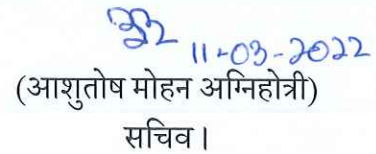 11-03-2022
(आशुतोष मोहन अग्निहोत्री)
सचिव।